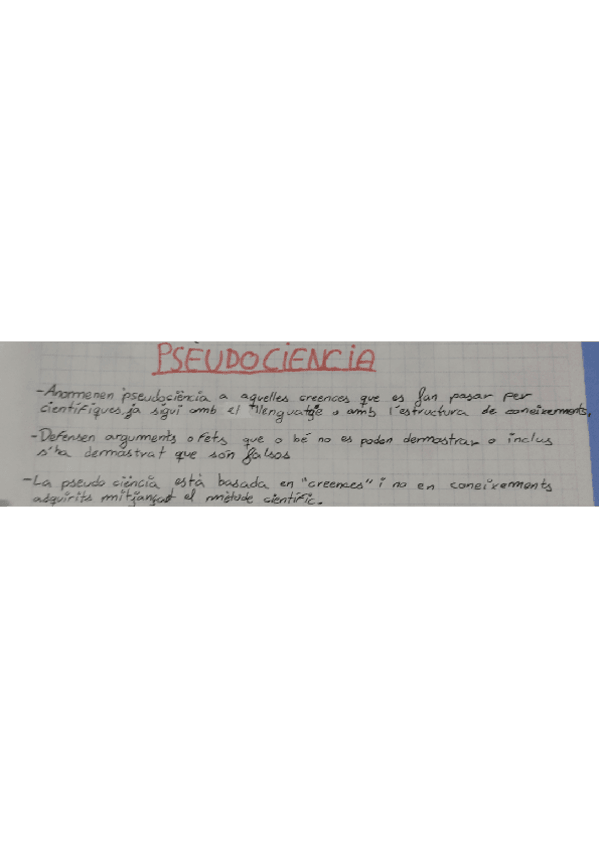 PSEUDOCIENCIA
-Anomenen pseudociència a aquelles creences que es fan pasar per
científiques, ja sigui amb el llenguatge o amb l'estructura de coneixements,
-Defensen arguments o fets que o bé no es poden dermostrar o inclus
s'ha dermostrat que són falsos
-La pseudo ciència està basada en "creences" i no en coneixements
adquirits mitjançat el mètode científic.